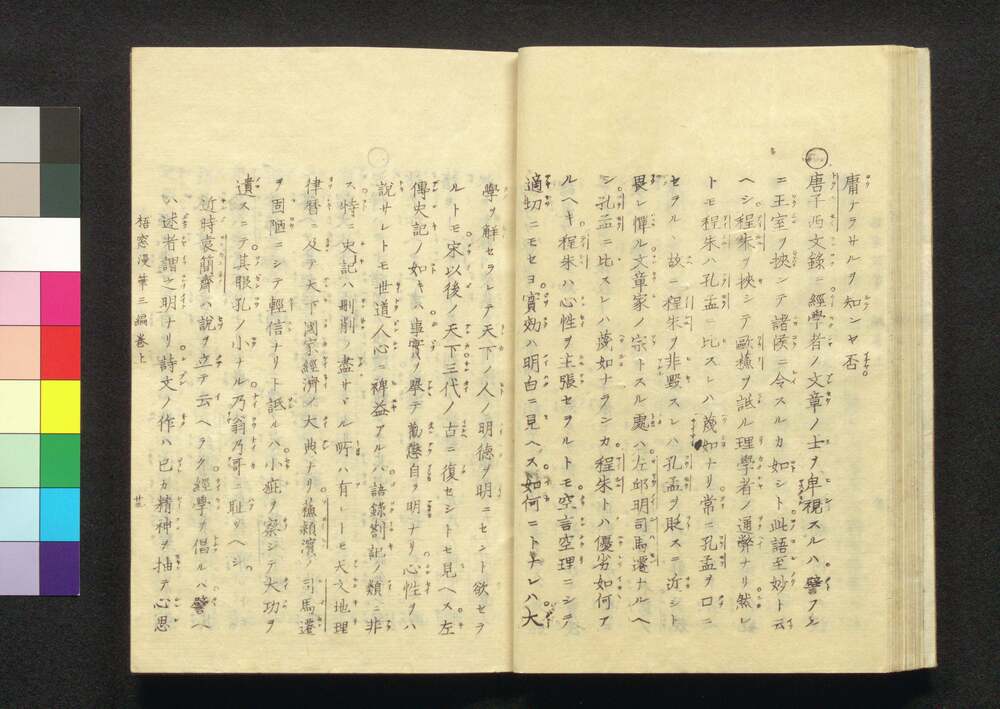 庸ナラサルヲ知ンヤ否
唐子西文錄ニ經學者ノ文章ノ士ヲ卑視スルハ譬フレ
ニ王室ヲ挾シテ諸侯ニ令スルカ如シト此語至妙ト云
ヘシ程朱ヲ挾シテ歐蘓ヲ詆ル理學者ノ通弊ナリ然レ
トモ程朱ハ孔孟ニ比スレハ蔑如ナリ常ニ孔孟ヲ口ニ
セラル故ニ程朱ヲ非毀スレハ孔孟ヲ貶スニ近シト
畏レ憚ル文章家ノ宗トスル處ハ左邱明司馬遷ナルヘ
シ孔孟ニ比スレハ蔑如ナランカ程朱トハ優劣如何ア
ルヘキ程朱ハ心性ヲ主張セラルトモ空言空理ニシテ
適切ニモセヨ實効ハ明白ニ見ヘス如何ニトナレハ大
學ヲ解セラレテ天下ノ人ノ明德ヲ明ニセント欲セラ
ルトモ宋以後ノ天下三代ノ古ニ復セシトモ見ヘス左
傳史記ノ如キハ事實ヲ擧テ勸懲自ラ明ナリ心性ヲハ
說サレトモ世道人心ニ裨益アルハ語錄劄記ノ類ニ非
ス特ニ史記ハ刪削ノ盡サヾル所ハ有レトモ天文地理
律曆ニ及テ天下國家經濟ノ大典ナリ蘓潁濱ノ司馬遷
ヲ固陋ニシテ輕信ナリト詆ルハ小疵ヲ察シテ大功ヲ
遺スニテ其眼孔ノ小ナル乃翁乃哥ニ耻ツヘシ
近時袁簡齋ハ說ヲ立テ云ヘラク經學ヲ倡ルハ譬ヘ
ハ述者謂之明ナリ詩文ノ作ハ己カ精神ヲ抽テ心思
梧窓漫筆三編卷上
廿